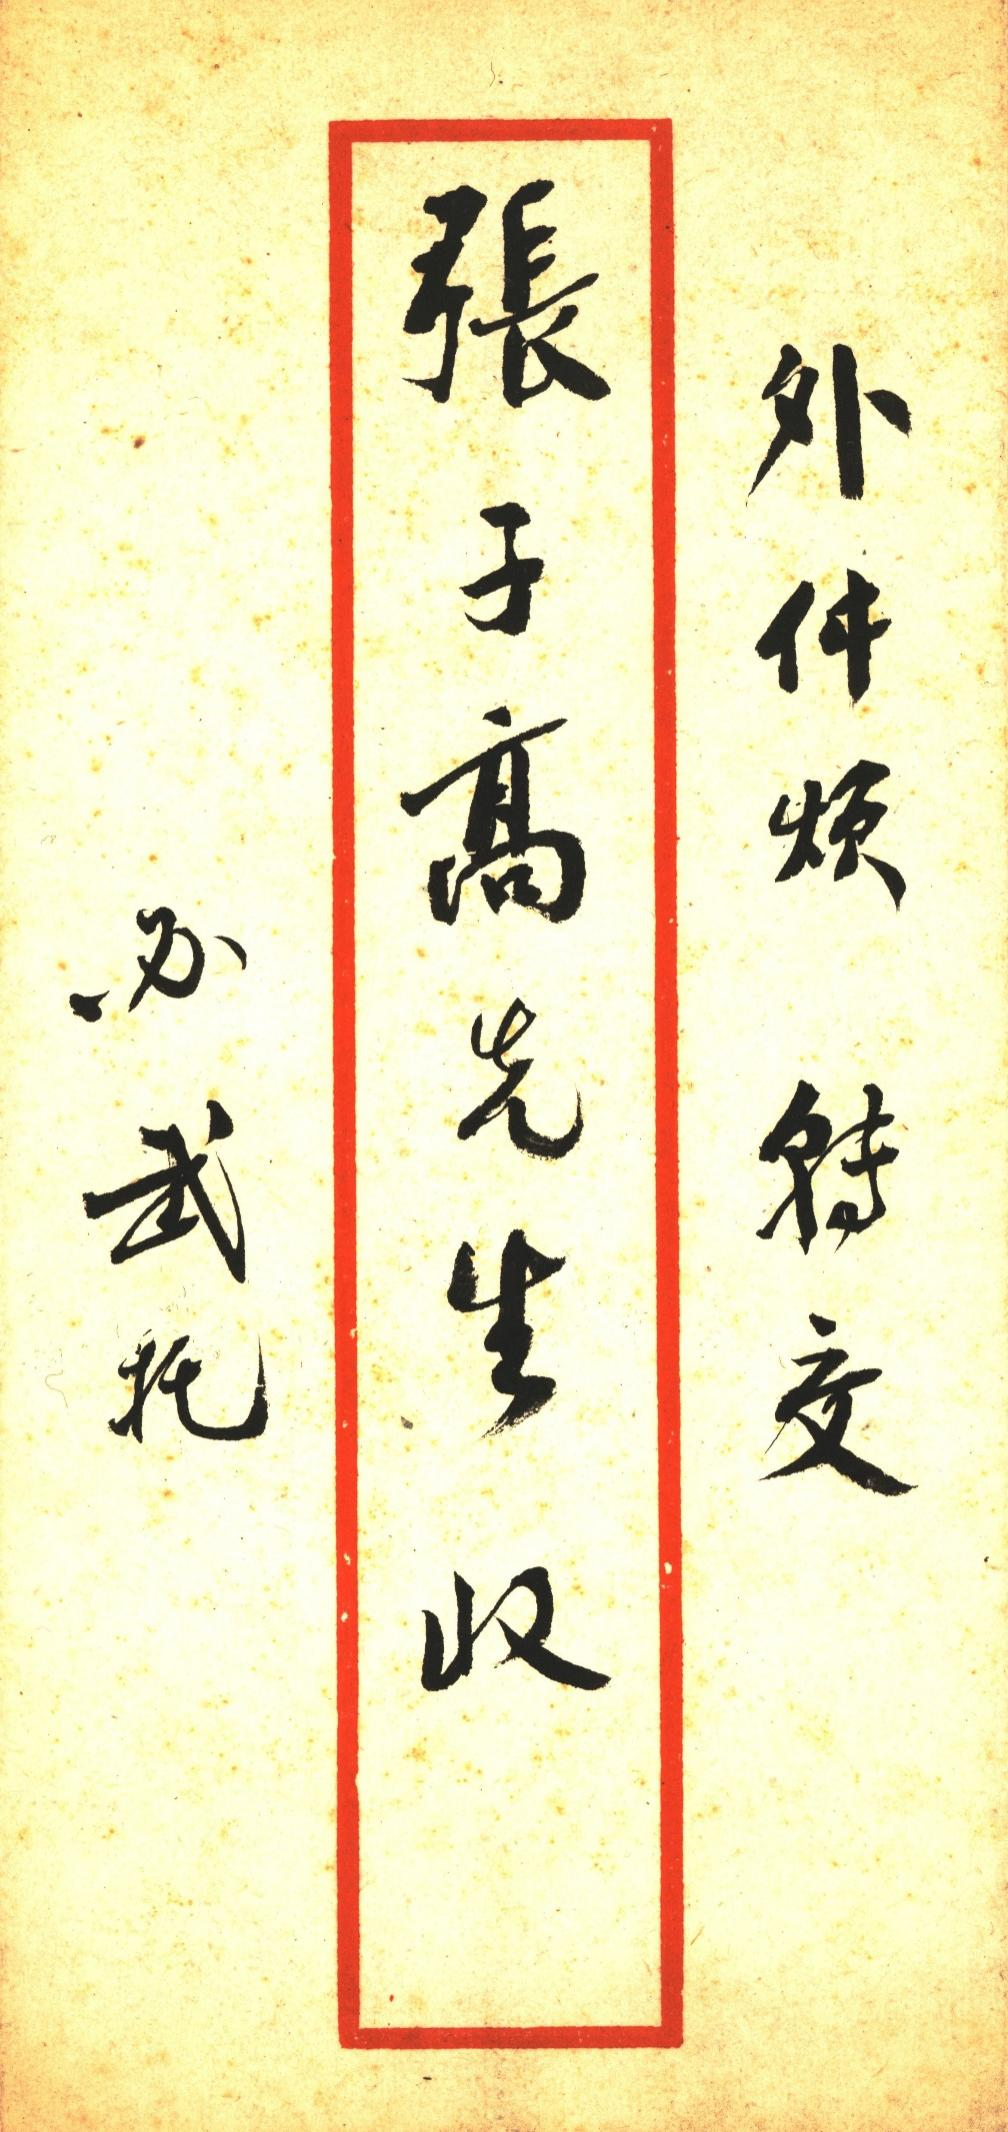 外件煩 轉交
張子高先生 收
必武托